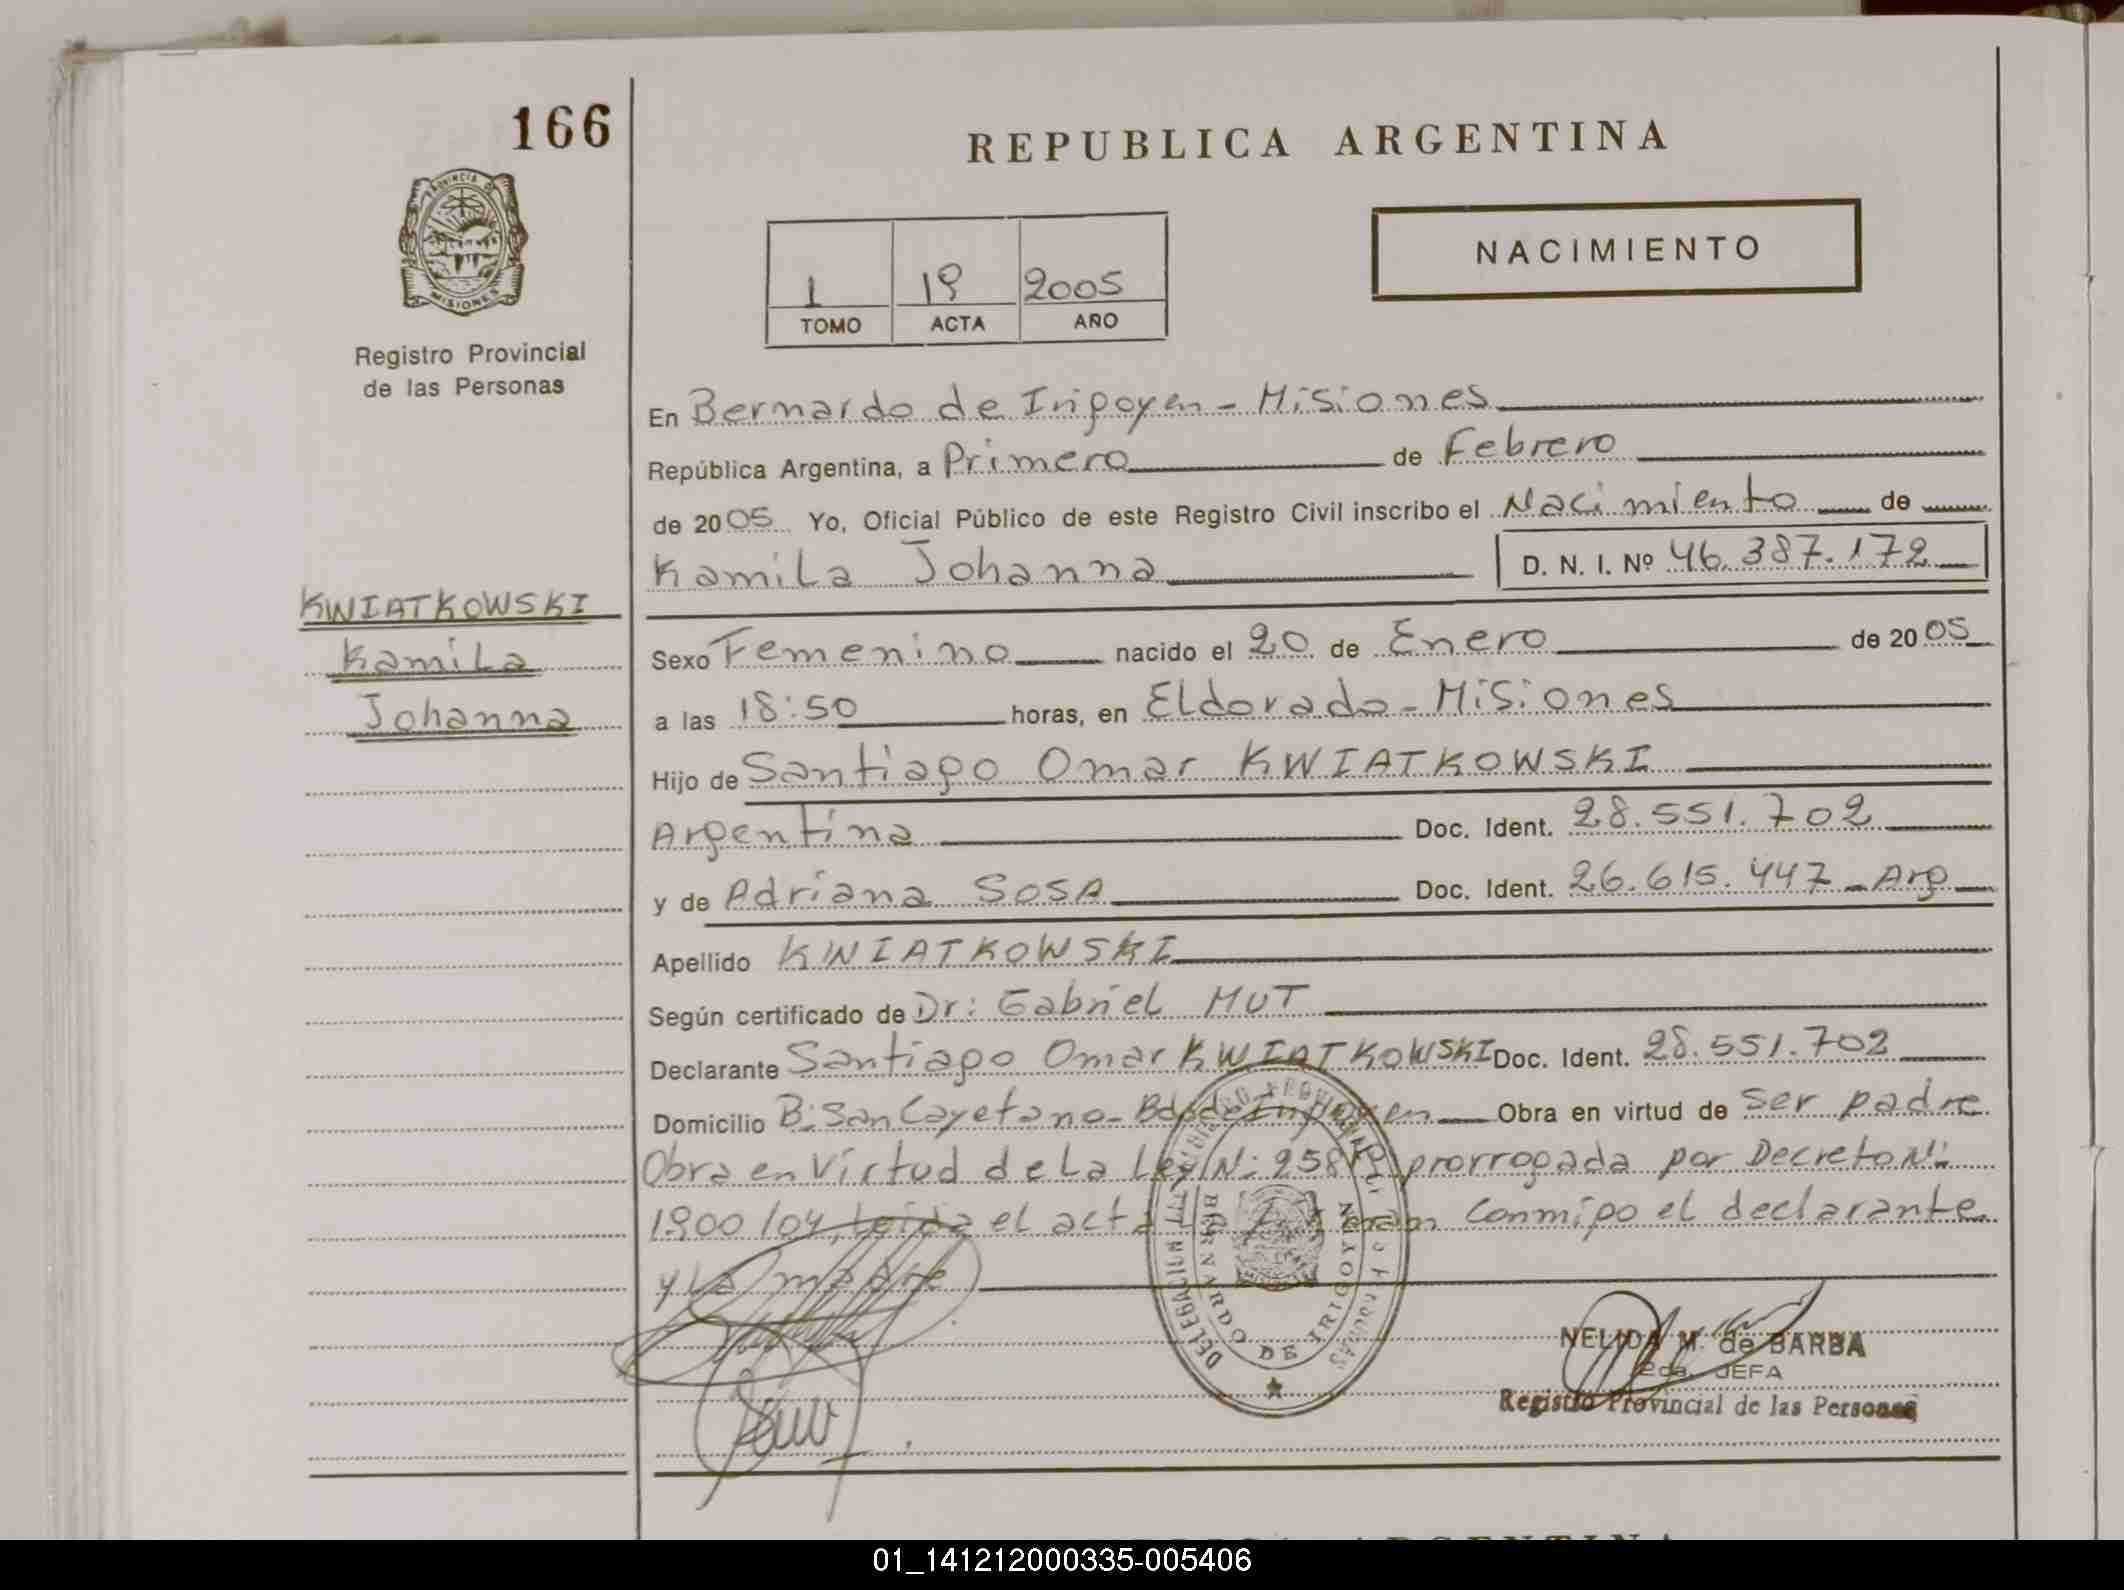 166
REPUBLICA ARGENTINA
PROVINCIA DE
MISIONES
Registro Provincial
de las Personas
NACIMIENTO
1 19 2005
TOMO ACTA AÑO
En Bernardo de Irigoyen - Misiones
República Argentina, a Primero de Febrero
de 2005 Yo, Oficial Público de este Registro Civil inscribo el Nacimiento de
Kamila Johanna D. N. I. Nº 46.387.172
KWIATKOWSKI
Kamila
Johanna
Sexo Femenino nacido el 20 de Enero de 2005
a las 18:50 horas, en Eldorado - Misiones
Hijo de Santiago Omar KWIATKOWSKI
Argentina Doc. Ident. 28.551.702
y de Adriana SOSA Doc. Ident. 26.615.447 - Arg
Apellido KWIATKOWSKI
Según certificado de Dr: Gabriel MUT
Declarante Santiago Omar KWIATKOWSKI Doc. Ident. 28.551.702
Domicilio B: San Cayetano - Bdo de Irigoyen Obra en virtud de ser padre
Obra en Virtud de La Ley N: prorrogada por Decreto N:
1900/04, Leida el acta conmigo el declarante
y La madre
DELEGACION
BERNARDO DE IRIGOYEN
NELIDA M. de BARBA
2da. JEFA
Registro Provincial de las Personas
REPUBLICA ARGENTINA
01_141212000335-005406